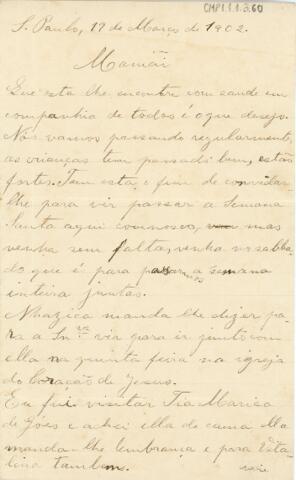 CMP1.1.3.60
S. Paulo, 17 de Março de 1902.
Mamãi
Que esta lhe encontre com saude em
companhia de todos é o que desejo.
Nós vamos passando regularmente,
as crianças tem passado bem, estão
fortes. Tem esta, o fim de convidar
lhe para vir passar a Semana
Santa aqui comnosco, mas
venha sem falta, venha no sabba-
do que é para passarmos a semana
inteira juntas.
Nhazica manda lhe dizer pa-
ra a Snra vir para ir junto com
ella na quinta feira na igreja
do Coração de Jesus.
Eu fui visitar Tia Marica
de Góes e achei ella de cama Ella
manda-lhe lembrança e para Vita-
lina tambem.